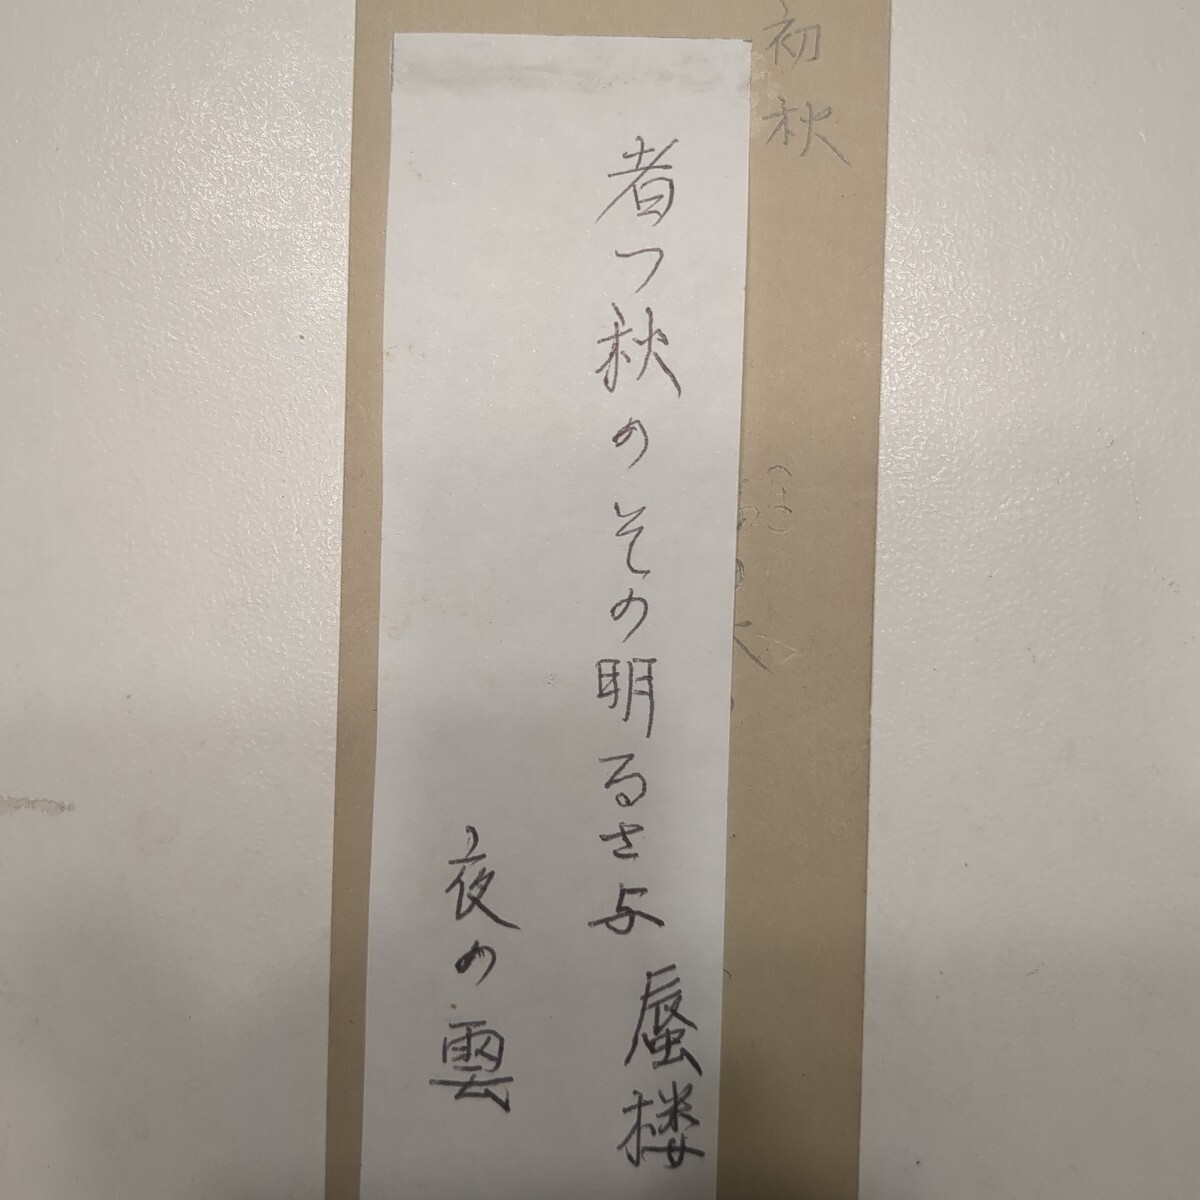 初秋
(は)
者つ秋のその明るさ与
蜃楼
夜の雲